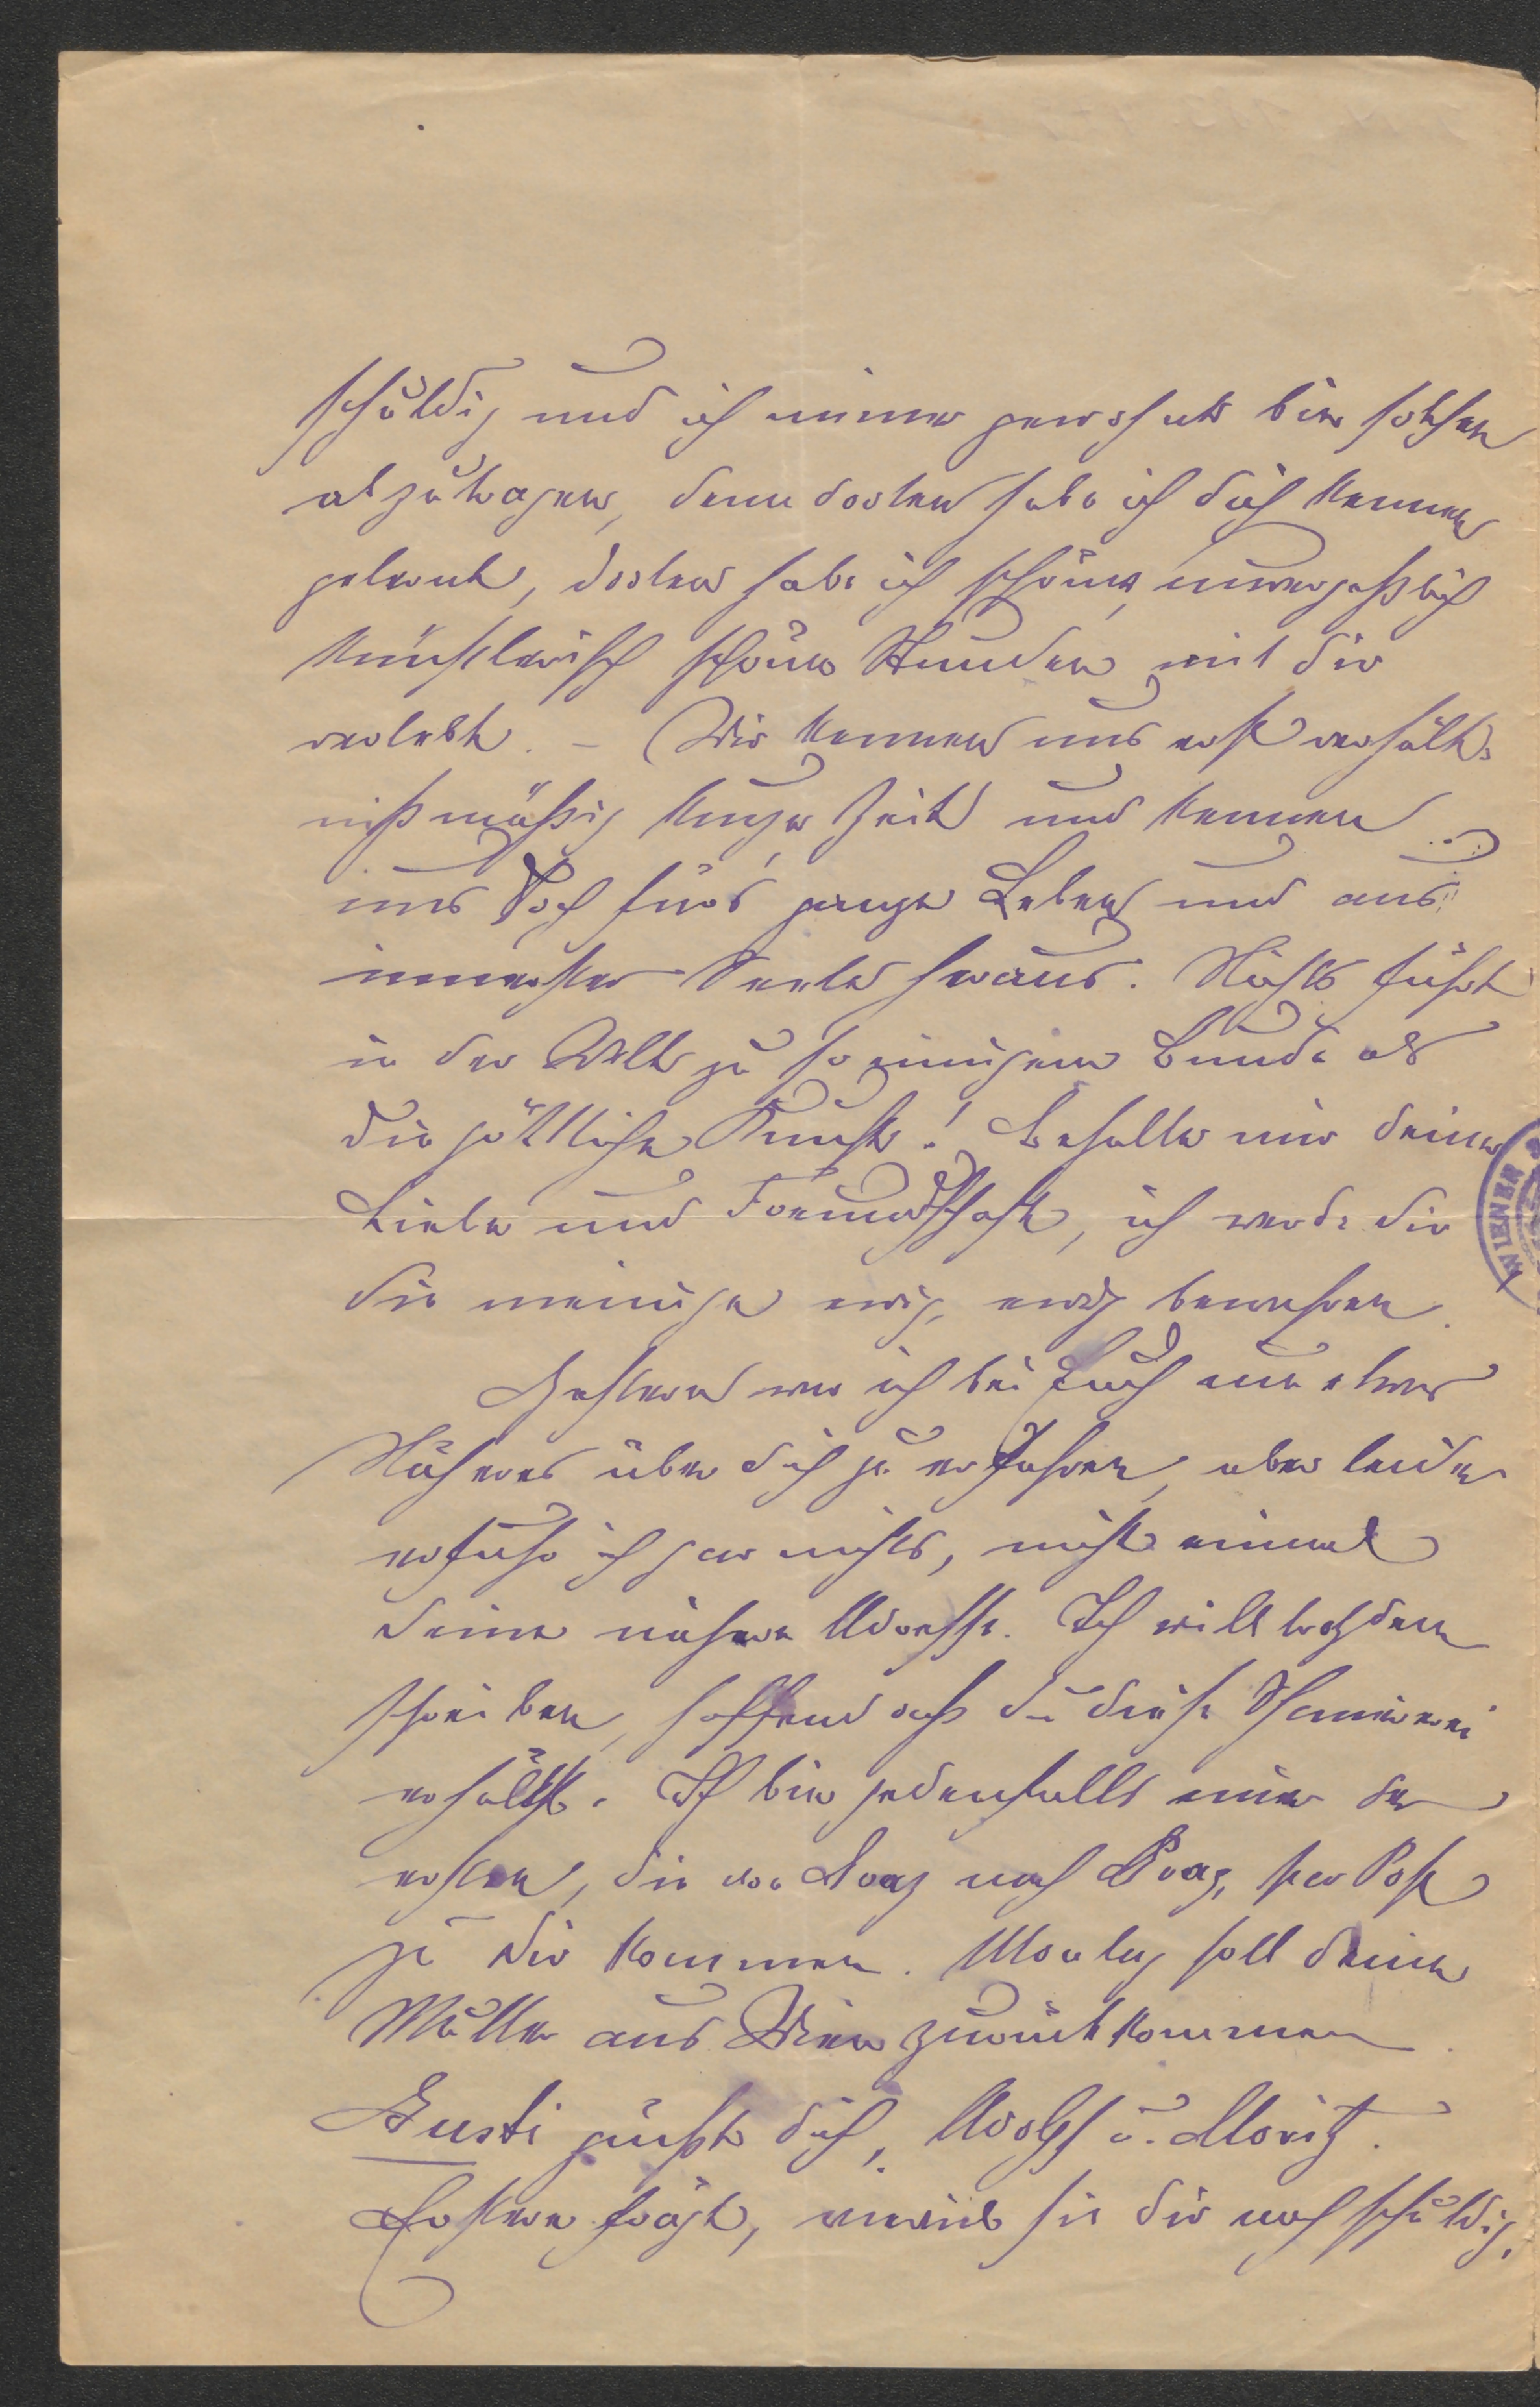 schuldig und ich immer gewohnt bin solchen
abzutragen, denn dorten habe ich dich kennen
gelernt, dorten habe ich schöne, unvergeßlich
künstlerisch schöne Stunden mit dir
verlebt. – Wir kennen uns erst verhält-
nißmäßig kurze Zeit und kennen
uns doch für's ganze Leben und aus
innerster Seele heraus. Nichts führt
in der Welt zu so innigem Bunde als
die göttliche Kunst! Behalte mir deine
Liebe und Freundschaft, ich werde dir
die meinige ewig, ewig bewahren.
Gestern war ich bei Euch um etwas
Näheres über dich zu erfahren, aber leider
erfuhr ich gar nichts, nicht einmal
deine nähere Adresse. Ich will trotzdem
schreiben, hoffend daß du diese Schmiererei
erhältst. Ich bin jedenfalls einer der
ersten, die von Graz nach Prag, per Post
zu dir kommen. Montag soll deine
Mutter aus Wien zurückkommen.
Gusti grüßt dich, Adolf u. Moritz.
Erstere frägt, wieviel sie dir noch schuldig,
WIENER